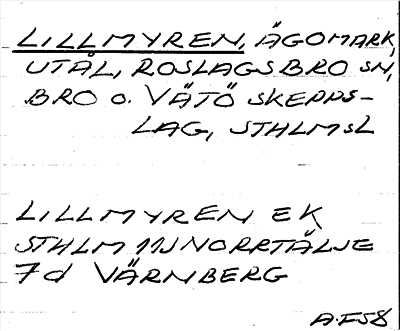 LILLMYREN, ÄGOMARK,
UTÅL, ROSLAGSBRO SN,
BRO O. VÄTÖ SKEPPS-
LAG, STHLMSL
LILLMYREN EK
STHLM 11J NORRTÄLJE
7d VÄRNBERG
A.F58